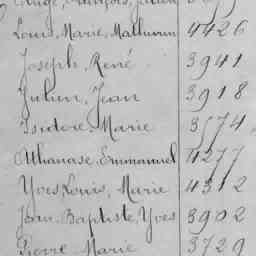 Louis, Marie, Mathurin 4426
Joseph, René 3941
Julien, Jean 3918
Isidore, Marie 3574
Athanase, Emmanuel 4277
Yves, Louis, Marie 4312
Jean, Baptiste, Yves 3902
Pierre, Marie 3729